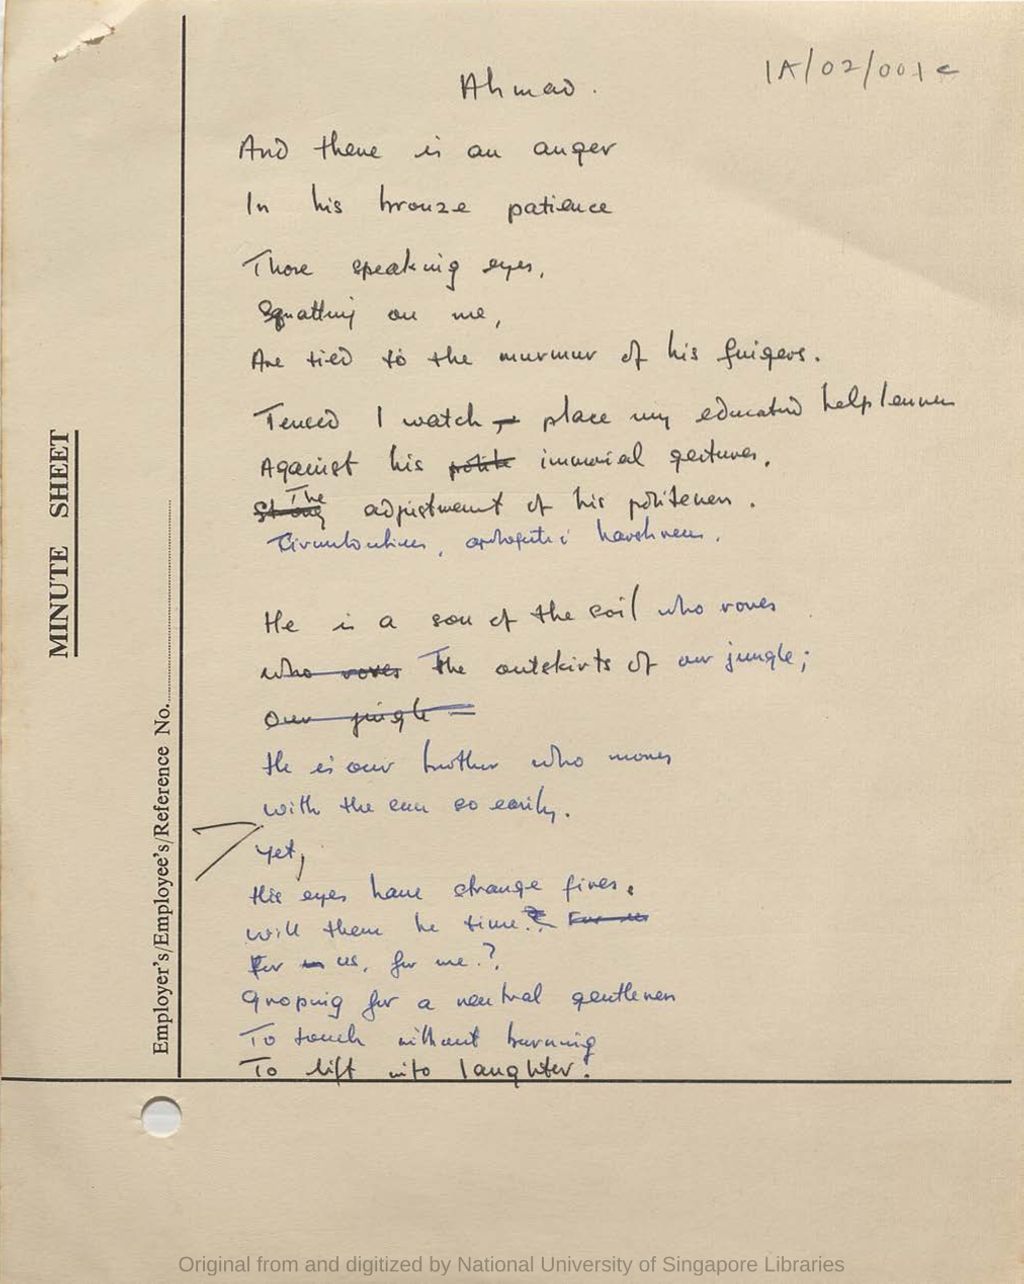 1A/02/001c
Ahmad.
And there is an anger
In his bronze patience
Those speaking eyes,
Squatting on me,
Are tied to the murmur of his fingers.
Tensed I watch, place my educated helplessness
Against his polite immemorial gestures,
Strong The adjustment of his politeness.
Circumlocutions, apologetic harshness.
He is a son of the soil who roves
who roves The outskirts of our jungle;
Our jungle
He is our brother who moves
with the sun so easily.
Yet,
His eyes have strange fires.
Will there be time? For us
For us, for me?
Groping for a neutral gentleness
To touch without burning
To lift into laughter.
MINUTE SHEET
Employer's/Employee's/Reference No.
Original from and digitized by National University of Singapore Libraries